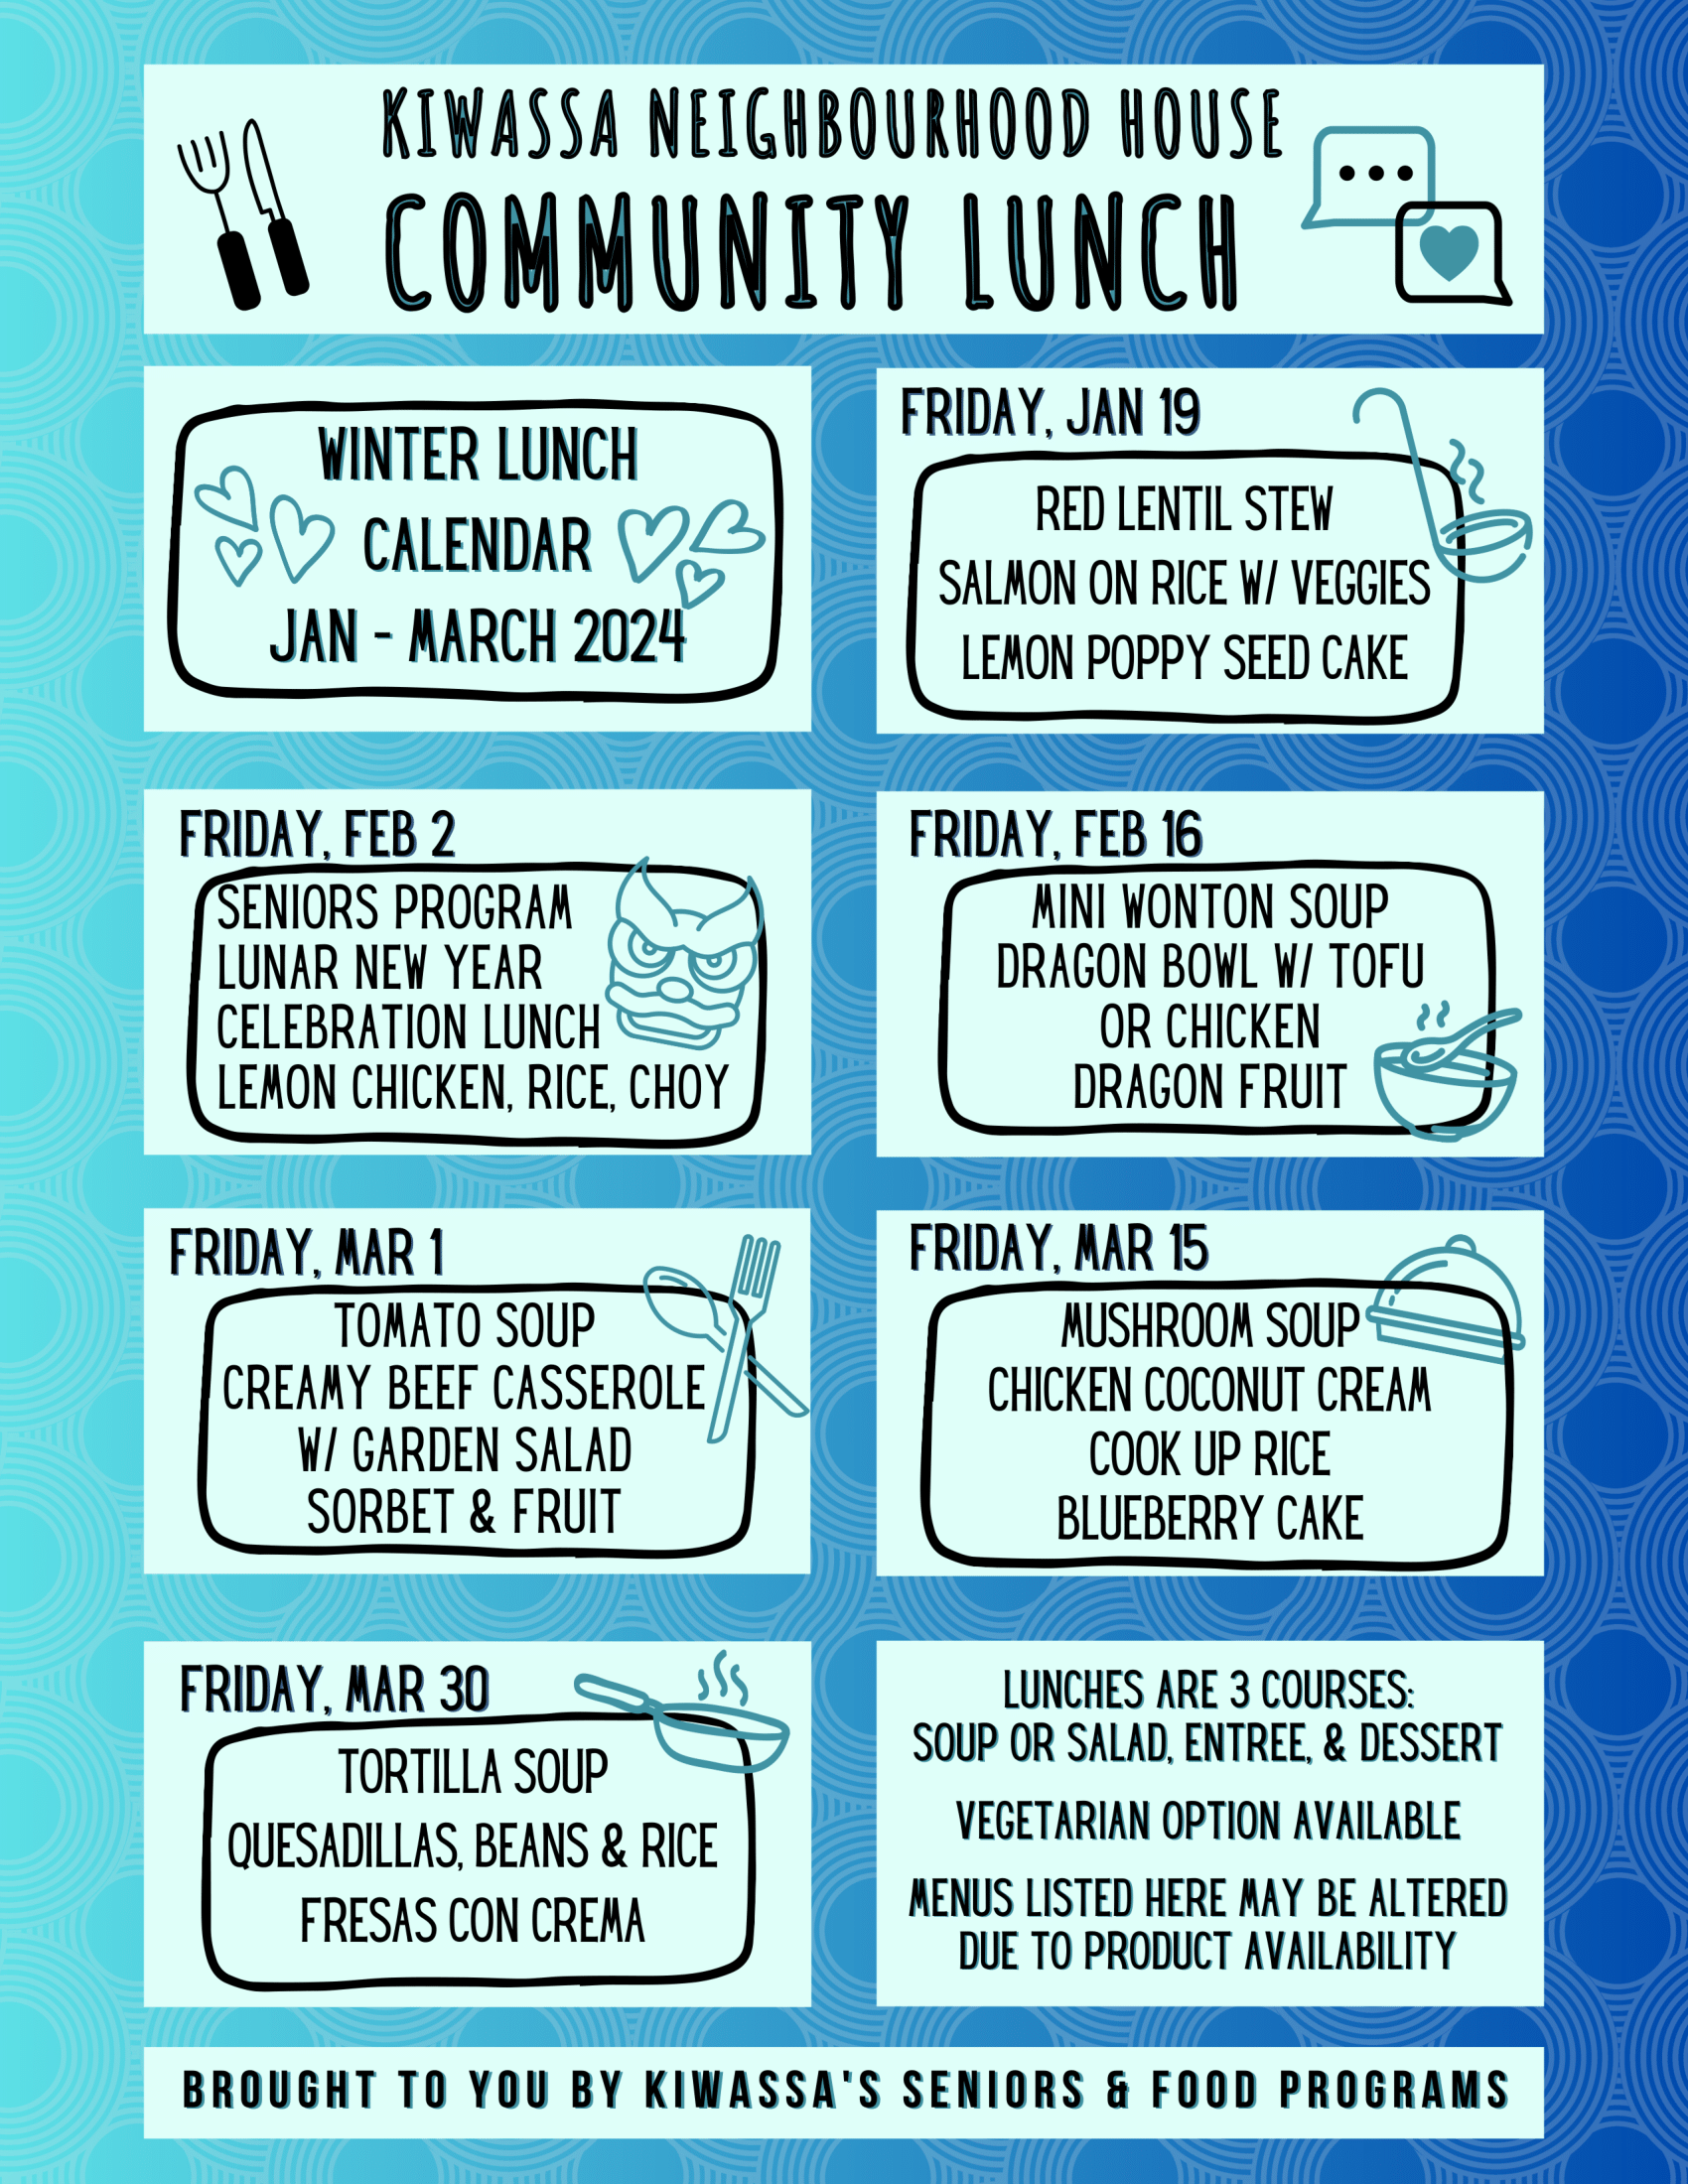 KIWASSA NEIGHBOURHOOD HOUSE
COMMUNITY LUNCH
WINTER LUNCH
CALENDAR
JAN - MARCH 2024
FRIDAY, JAN 19
RED LENTIL STEW
SALMON ON RICE W/ VEGGIES
LEMON POPPY SEED CAKE
FRIDAY, FEB 2
SENIORS PROGRAM
LUNAR NEW YEAR
CELEBRATION LUNCH
LEMON CHICKEN, RICE, CHOY
FRIDAY, FEB 16
MINI WONTON SOUP
DRAGON BOWL W/ TOFU
OR CHICKEN
DRAGON FRUIT
FRIDAY, MAR 1
TOMATO SOUP
CREAMY BEEF CASSEROLE
W/ GARDEN SALAD
SORBET & FRUIT
FRIDAY, MAR 15
MUSHROOM SOUP
CHICKEN COCONUT CREAM
COOK UP RICE
BLUEBERRY CAKE
FRIDAY, MAR 30
TORTILLA SOUP
QUESADILLAS, BEANS & RICE
FRESAS CON CREMA
LUNCHES ARE 3 COURSES:
SOUP OR SALAD, ENTREE, & DESSERT
VEGETARIAN OPTION AVAILABLE
MENUS LISTED HERE MAY BE ALTERED
DUE TO PRODUCT AVAILABILITY
BROUGHT TO YOU BY KIWASSA'S SENIORS & FOOD PROGRAMS